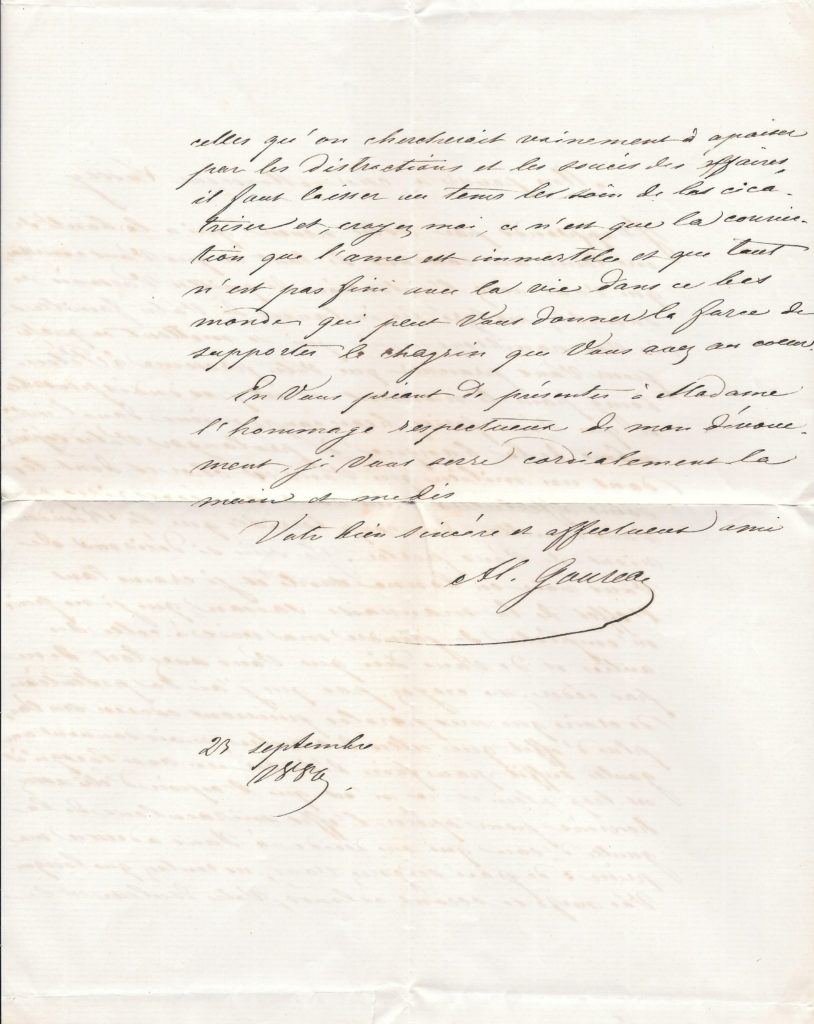 celles qu'on chercherait vainement à apaiser
par les distractions et les soucis des affaires,
il faut laisser au tems le soin de les cica-
triser et, croyez moi, ce n'est que la convic-
tion que l'ame est immortelle et que tout
n'est pas fini avec la vie dans ce bas
monde, qui peut Vous donner la force de
supporter le chagrin que Vous avez au coeur.
En Vous priant de présenter à Madame
l'hommage respectueux de mon dévoue-
ment, je Vous serre cordialement la
main et me dis
Votre bien sincère et affectueux ami
Al.
23 septembre